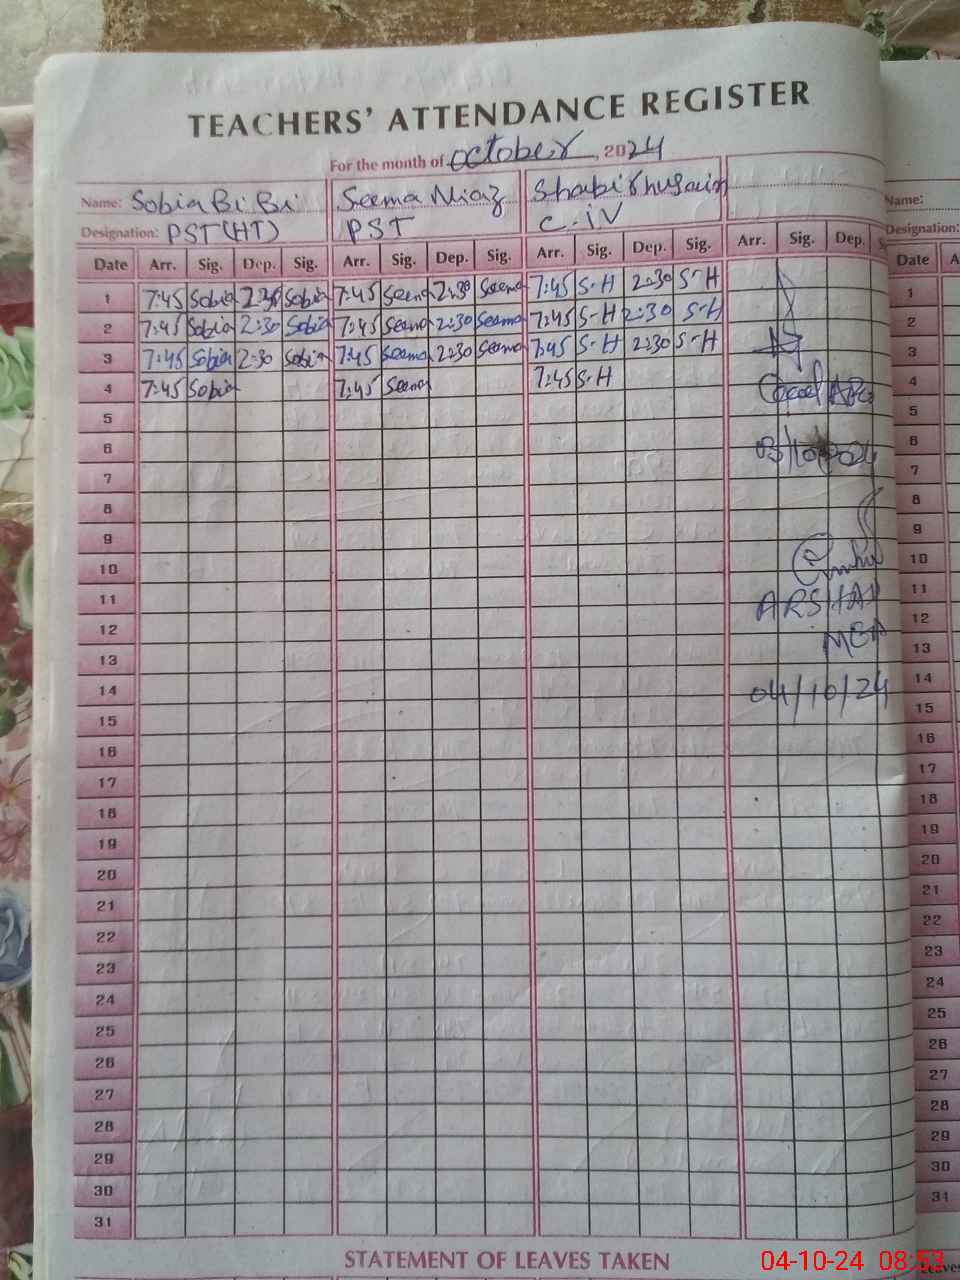 TEACHERS' ATTENDANCE REGISTER
For the month of october, 2024
Name: Sobia Bi Bi Seema Niaz Shabir husain Name:
Designation: PST(HT) PST C-iV Designation:
Date Arr. Sig. Dep. Sig. Arr. Sig. Dep. Sig. Arr. Sig. Dep. Sig. Arr. Sig. Dep. S Date A
1 7:45 Sobia 2:30 Sobia 7:45 Seema 2:30 Seema 7:45 S-H 2:30 S-H 1
2 7:45 Sobia 2:30 Sobia 7:45 Seema 2:30 Seema 7:45 S-H 2:30 S-H 2
3 7:45 Sobia 2:30 Sobia 7:45 Seema 2:30 Seema 7:45 S-H 2:30 S-H 3
4 7:45 Sobia 7:45 Seema 7:45 S-H 4
5 5
6 03/10/2024 6
7 7
8 8
9 9
10 10
11 ARSHAD 11
12 MEA 12
13 13
14 04/10/24 14
15 15
16 16
17 17
18 18
19 19
20 20
21 21
22 22
23 23
24 24
25 25
26 26
27 27
28 28
29 29
30 30
31 31
STATEMENT OF LEAVES TAKEN
04-10-24 08:53